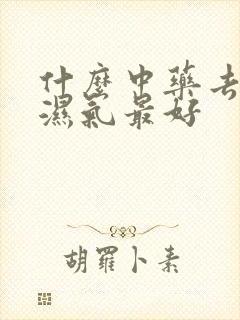 什麼中藥去
濕氣最好
胡羅卜素